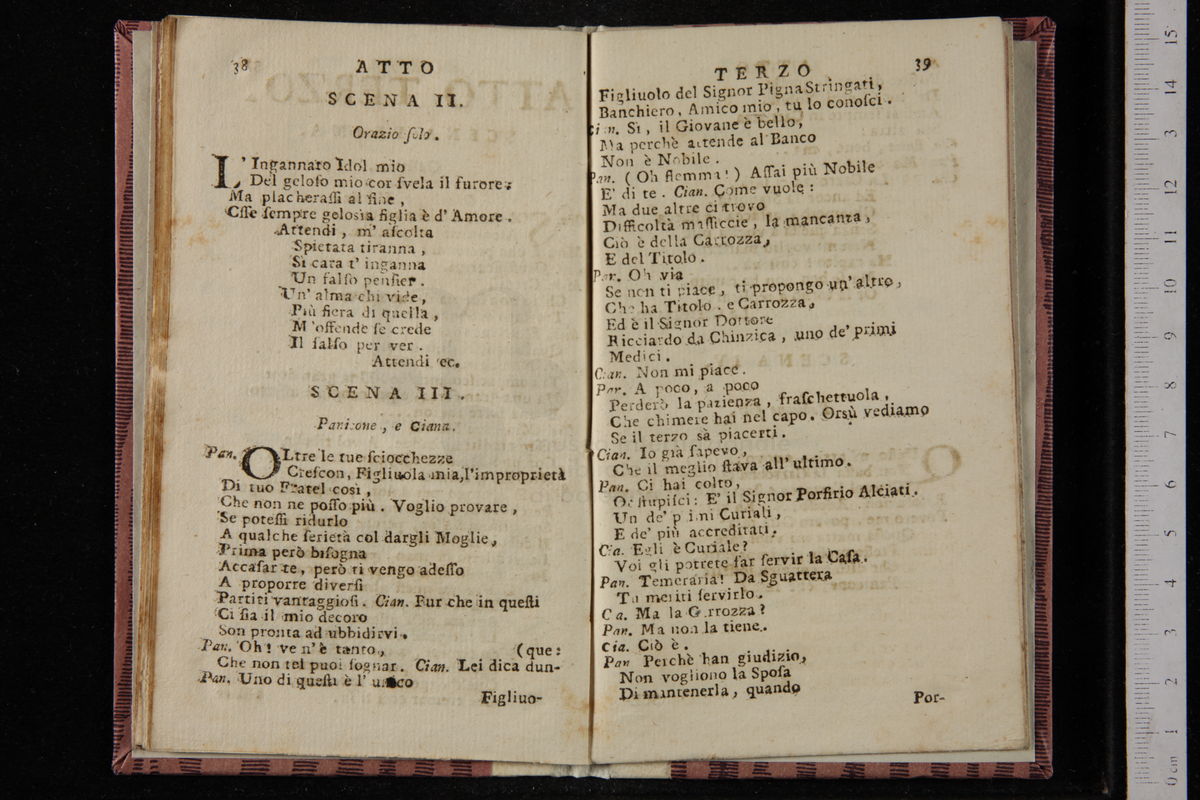 38 ATTO
SCENA II.
Orazio solo.
L'Ingannato Idol mio
Del geloso mio cor svela il furore:
Ma placherassi al fine,
Esse sempre gelosia figlia è d' Amore.
Attendi, m' ascolta
Spietata tiranna,
Sì cara t' inganna
Un falso pensier.
Un' alma chi vide,
Più fiera di quella,
M'offende se crede
Il falso per ver.
Attendi ec.
SCENA III.
Panicone, e Ciana.
Pan. OLtre le tue sciocchezze
Crescon, Figliuola mia, l'improprietà
Di tuo Fratel così,
Che non ne posso più. Voglio provare,
Se potessi ridurlo
A qualche serietà col dargli Moglie,
Prima però bisogna
Accasarte, però ti vengo adesso
A proporre diversi
Partiti vantaggiosi. Cian. Pur che in questi
Ci sia il mio decoro
Son pronta ad ubbidirvi.
Pan. Oh! ve n' è tanto, (que:
Che non tel puoi sognar. Cian. Lei dica dun-
Pan. Uno di questi è l' unico
Figliuo-
TERZO 39
Figliuolo del Signor Pigna Stringati,
Banchiero, Amico mio, tu lo conosci.
Cian. Sì, il Giovane è bello,
Ma perchè attende al Banco
Non è Nobile.
Pan. (Oh flemma!) Assai più Nobile
E' di te. Cian. Come vuole:
Ma due altre ci trovo
Difficoltà massiccie, la mancanza,
Ciò è della Carrozza,
E del Titolo.
Pan. Oh via
Se non ti piace, ti propongo un' altro,
Che ha Titolo, e Carrozza,
Ed è il Signor Dottore
Ricciardo da Chinzica, uno de' primi
Medici.
Cian. Non mi piace.
Pan. A poco, a poco
Perderò la pazienza, fraschettuola,
Che chimere hai nel capo. Orsù vediamo
Se il terzo sà piacerti.
Cian. Io già sapevo,
Che il meglio stava all' ultimo.
Pan. Ci hai colto,
Or stupisci: E' il Signor Porfirio Alciati.
Un de' primi Curiali,
E de' più accreditati.
Cia. Egli è Curiale?
Voi gli potrete far servir la Casa.
Pan. Temeraria! Da Sguattera
Tu meriti servirlo.
Cia. Ma la Carrozza?
Pan. Ma non la tiene.
Cia. Ciò è.
Pan Perchè han giudizio,
Non vogliono la Sposa
Di mantenerla, quando
Por-